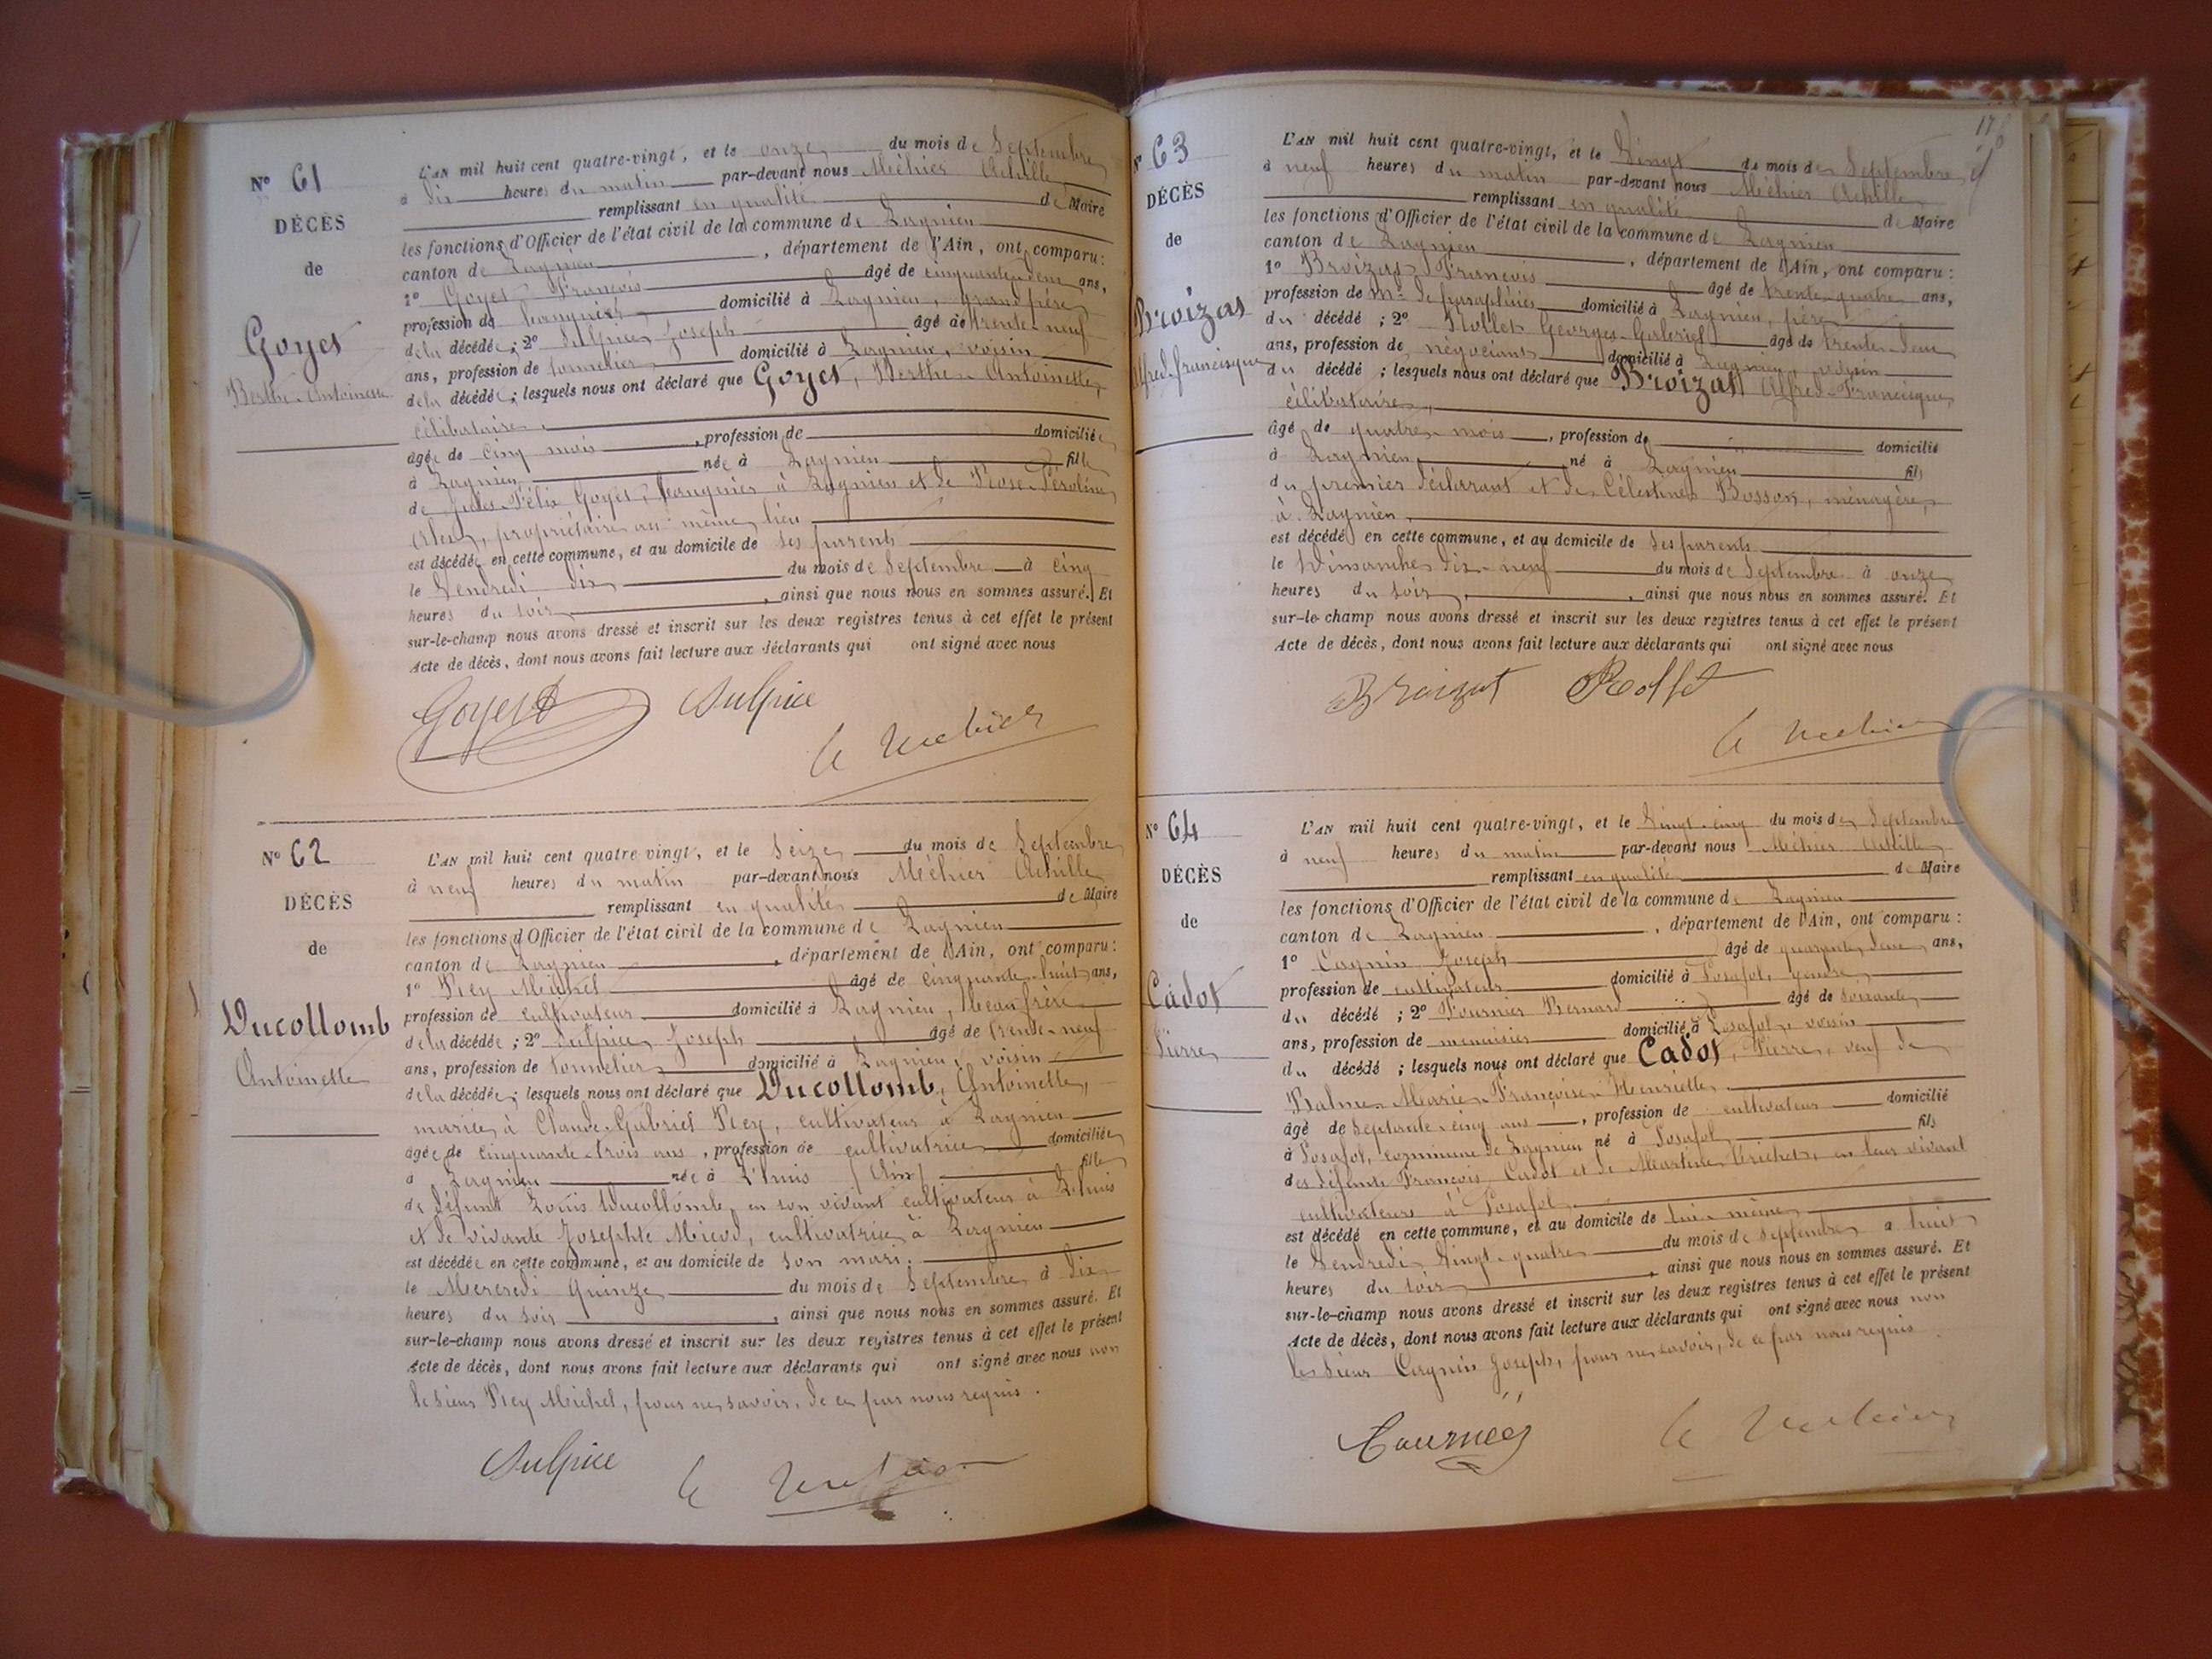 N° 61
DÉCÈS
de
Goyet
Berthe-Antoinette
L'AN mil huit cent quatre-vingt, et le onze du mois de Septembre
à dix heures du matin par-devant nous Méhier Achille
remplissant en qualité de Maire
les fonctions d'Officier de l'état civil de la commune de Lagnieu
canton de Lagnieu, département de l'Ain, ont comparu:
1° Goyet François âgé de cinquante-deux ans,
profession de banquier domicilié à Lagnieu, grand père
de la décédée; 2° Sulpice Joseph âgé de trente-neuf
ans, profession de tonnelier domicilié à Lagnieu, voisin
de la décédée; lesquels nous ont déclaré que Goyet, Berthe-Antoinette,
célibataire,
âgée de cinq mois, profession de domiciliée
à Lagnieu née à Lagnieu fille
de Jules-Félix Goyet, banquier à Lagnieu et de Rose
propriétaire au même lieu
est décédée en cette commune, et au domicile de ses parents
le Vendredi dix du mois de Septembre à cinq
heures du soir, ainsi que nous nous en sommes assuré. Et
sur-le-champ nous avons dressé et inscrit sur les deux registres tenus à cet effet le présent
Acte de décès, dont nous avons fait lecture aux déclarants qui ont signé avec nous
Goyet Sulpice
A Méhier
N° 62
DÉCÈS
de
Ducollomb
Antoinette
L'AN mil huit cent quatre vingt, et le Seize du mois de Septembre
à neuf heures du matin par-devant nous Méhier Achille
remplissant en qualité de Maire
les fonctions d'Officier de l'état civil de la commune de Lagnieu
canton de Lagnieu, département de l'Ain, ont comparu:
1° Rey Michel âgé de cinquante-huit ans,
profession de cultivateur domicilié à Lagnieu, beau frère
de la décédée; 2° Sulpice Joseph âgé de trente-neuf
ans, profession de tonnelier domicilié à Lagnieu, voisin
de la décédée; lesquels nous ont déclaré que Ducollomb, Antoinette,
mariée à Claude-Gabriel Rey, cultivateur à Lagnieu
âgée de cinquante-trois ans, profession de cultivatrice domiciliée
à Lagnieu née à Lhuis (Ain) fille
de défunt Louis Ducollomb, en son vivant cultivateur à Lhuis
et de vivante Josephte Micod, cultivatrice à Lagnieu
est décédée en cette commune, et au domicile de son mari,
le Mercredi quinze du mois de Septembre à dix
heures du soir, ainsi que nous nous en sommes assuré. Et
sur-le-champ nous avons dressé et inscrit sur les deux registres tenus à cet effet le présent
Acte de décès, dont nous avons fait lecture aux déclarants qui ont signé avec nous non
le sieur Rey Michel, pour ne savoir, de ce par nous requis.
Sulpice A Méhier
N° 63
DÉCÈS
de
Broizat
Alfred-francisque
L'AN mil huit cent quatre-vingt, et le Vingt du mois de Septembre
à neuf heures du matin par-devant nous Méhier Achille
remplissant en qualité de Maire
les fonctions d'Officier de l'état civil de la commune de Lagnieu
canton de Lagnieu, département de l'Ain, ont comparu:
1° Broizat François âgé de trente-quatre ans,
profession de Md de parapluies domicilié à Lagnieu, père
du décédé; 2° Rollet Georges-Gabriel âgé de trente-deux
ans, profession de négociant domicilié à Lagnieu, voisin
du décédé; lesquels nous ont déclaré que Broizat Alfred-Francisque,
célibataire,
âgé de quatre mois, profession de domicilié
à Lagnieu, né à Lagnieu fils
du premier déclarant et de Célestine Bosson, ménagère,
à Lagnieu,
est décédé en cette commune, et au domicile de ses parents
le Dimanche dix-neuf du mois de Septembre à onze
heures du soir, ainsi que nous nous en sommes assuré. Et
sur-le-champ nous avons dressé et inscrit sur les deux registres tenus à cet effet le présent
Acte de décès, dont nous avons fait lecture aux déclarants qui ont signé avec nous
Broizat Rollet
A Méhier
N° 64
DÉCÈS
de
Cadot
Pierre
L'AN mil huit cent quatre-vingt, et le Vingt-cinq du mois de Septembre
à neuf heures du matin par-devant nous Méhier Achille
remplissant en qualité de Maire
les fonctions d'Officier de l'état civil de la commune de Lagnieu
canton de Lagnieu, département de l'Ain, ont comparu:
1° Cagnin Joseph âgé de quarante-deux ans,
profession de cultivateur domicilié à Posafol, gendre
du décédé; 2° Fournier Bernard âgé de soixante
ans, profession de menuisier domicilié à Posafol, voisin
du décédé; lesquels nous ont déclaré que Cadot, Pierre, veuf de
Balme Marie-Françoise-Henriette,
âgé de septante-cinq ans, profession de cultivateur domicilié
à Posafol, commune de Lagnieu né à Posafol fils
des défunts François Cadot et de Martine en leur vivant
cultivateurs à Posafol
est décédé en cette commune, et au domicile de lui-même
le Vendredi Vingt-quatre du mois de Septembre à huit
heures du soir, ainsi que nous nous en sommes assuré. Et
sur-le-champ nous avons dressé et inscrit sur les deux registres tenus à cet effet le présent
Acte de décès, dont nous avons fait lecture aux déclarants qui ont signé avec nous non
le sieur Cagnin Joseph, pour ne savoir, de ce par nous requis.
A Méhier